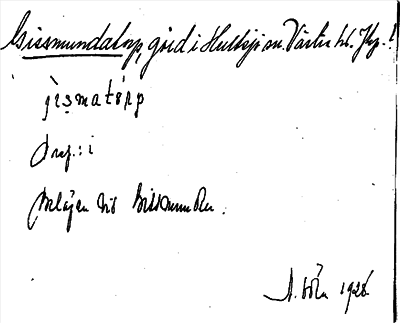 Gissmundatorp, gård i Hultsjö sn. Västra hd. Jkp. l.
jìsmatórp
Prep.: i
Belägen vid Gissmunden.
1928